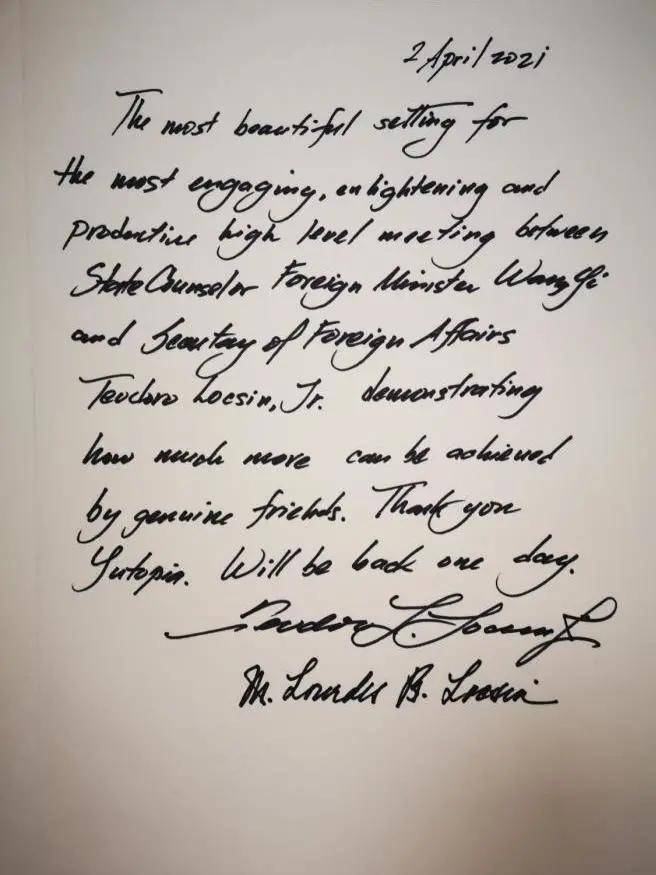 2 April 2021
The most beautiful setting for
the most engaging, enlightening and
productive high level meeting between
State Counselor Foreign Minister Wang Yi
and Secretary of Foreign Affairs
Teodoro Locsin, Jr. demonstrating
how much more can be achieved
by genuine friends. Thank you
Yutopia. Will be back one day.
Teodoro L. Locsin Jr
M. Lourdes B. Locsin